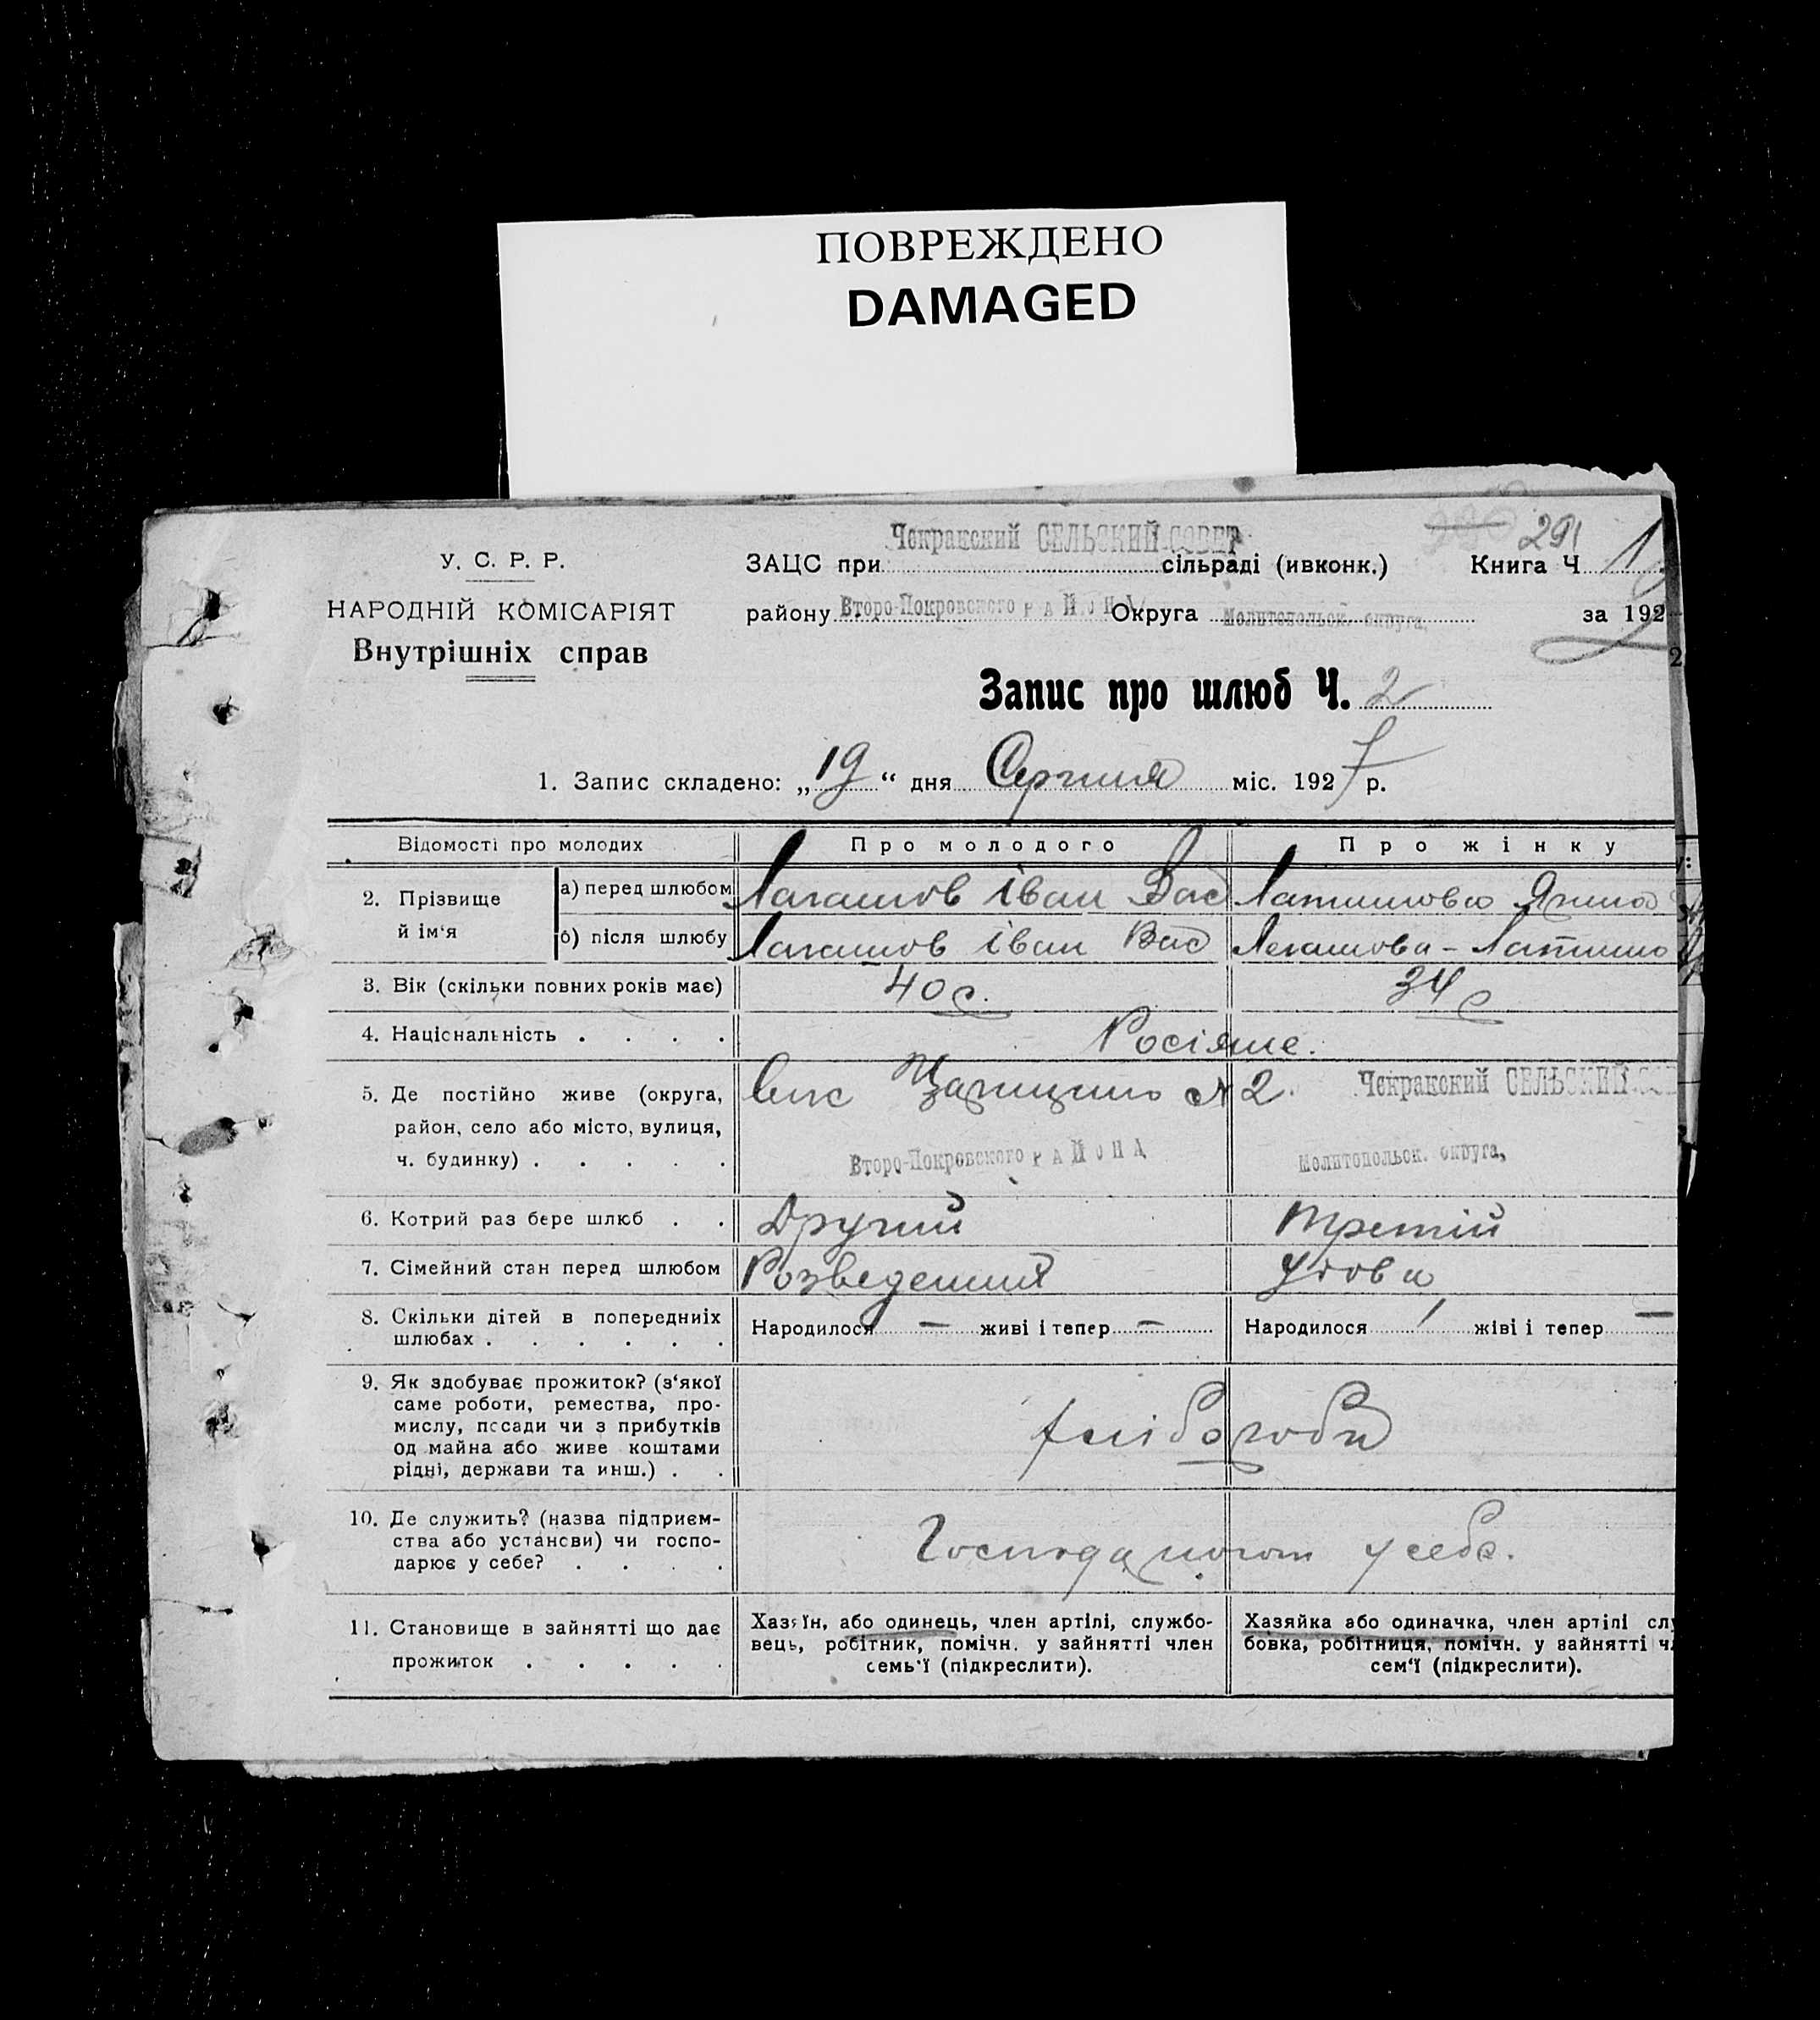 ПОВРЕЖДЕНО
DAMAGED
291
Чекракский СЕЛЬСКИЙ СОВЕТ
У. С. Р. Р.
ЗАЦС при сільраді (ивконк.) Книга Ч 1
НАРОДНІЙ КОМІСАРІЯТ
району Второ-Покровского РАЙОНА Округа Мелитопольск. округа, за 192
Внутрішніх справ
Запис про шлюб Ч. 2
1. Запис складено: „19“ дня Серпня міс. 1927 р.
Відомості про молодих Про молодого Про жінку
2. Прізвище й ім‘я
а) перед шлюбом Лагашов Іван Вас
б) після шлюбу Лагашов Іван Вас
3. Вік (скільки повних років має) 40 34
4. Національність . . . . Росіяне.
5. Де постійно живе (округа, район, село або місто, вулиця, ч. будинку) . . . . .
Царицино №2. Чекракский СЕЛЬСКИЙ
Второ-Покровского РАЙОНА Мелитопольск. округа,
6. Котрий раз бере шлюб . . Другий Третій
7. Сімейний стан перед шлюбом Розведений Удова
8. Скільки дітей в попередніх шлюбах . . . . . .
Народилося — живі і тепер — Народилося 1 жіві і тепер —
9. Як здобуває прожиток? (з‘якої
саме роботи, ремества, про-
мислу, посади чи з прибутків
од майна або живе коштами
рідні, держави та инш.) . .
Хлібороби
10. Де служить? (назва підприєм-
ства або установи) чи госпо-
дарює у себе? . . . .
у себе.
11. Становище в зайнятті що дає
прожиток . . . . .
Хазяїн, або одинець, член артілі, службо-
вець, робітник, помічн. у зайнятті член
семь‘ї (підкреслити).
Хазяйка або одиначка, член артілі слу
бовка, робітниця, помічн. у зайнятті чл
сем‘ї (підкреслити).